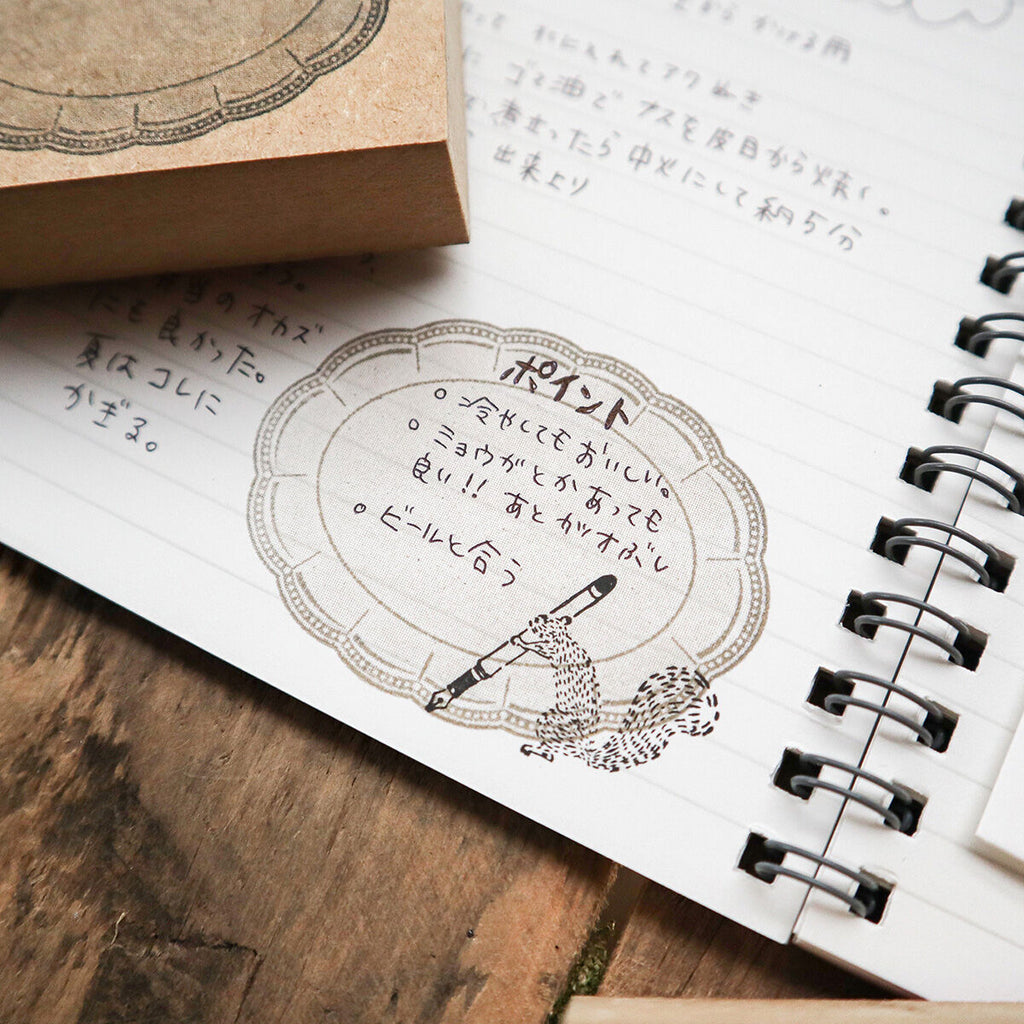 水に入れてアク ぬき
ゴマ油で ナスを皮目から焼く。
煮立ったら 中火にして 約5分
出来上り
のオカズ
にも良かった。
夏は コレに
かぎる。
ポイント
○ 冷やしてもおいしい。
○ ミョウガとかあっても
良い!! あとカツオぶし
○ ビールと合う